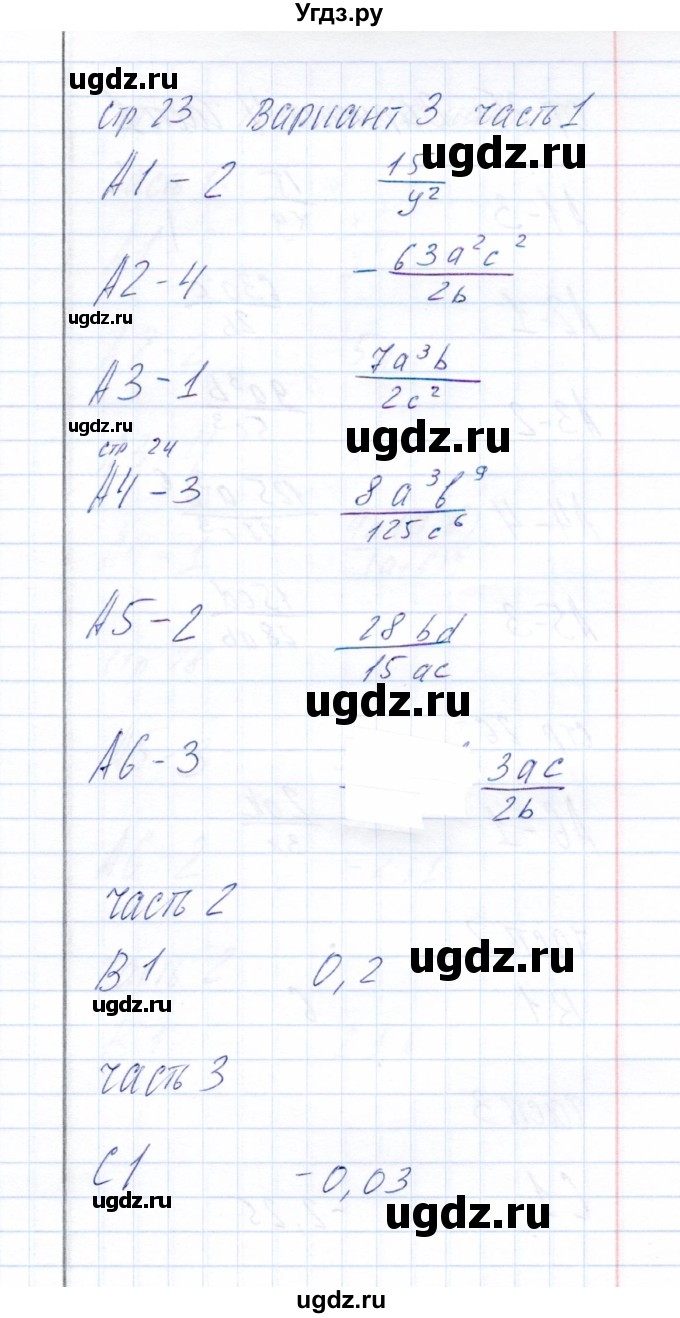 Угдз.ру
ugdz.ru
стр 23 Вариант 3 часть 1
ugdz.ru
А1 - 2 15/y²
А2 - 4 - 63a²c²/2b
ugdz.ru
А3 - 1 7a³b/2c²
ugdz.ru
ugdz.ru
стр 24
А4 - 3 8a³b⁹/125c⁶
А5 - 2 28bd/15ac
ugdz.ru
А6 - 3 3ac/2b
часть 2
В1 0,2
ugdz.ru
ugdz.ru
часть 3
С1 -0,03
ugdz.ru
ugdz.ru
ugdz.ru